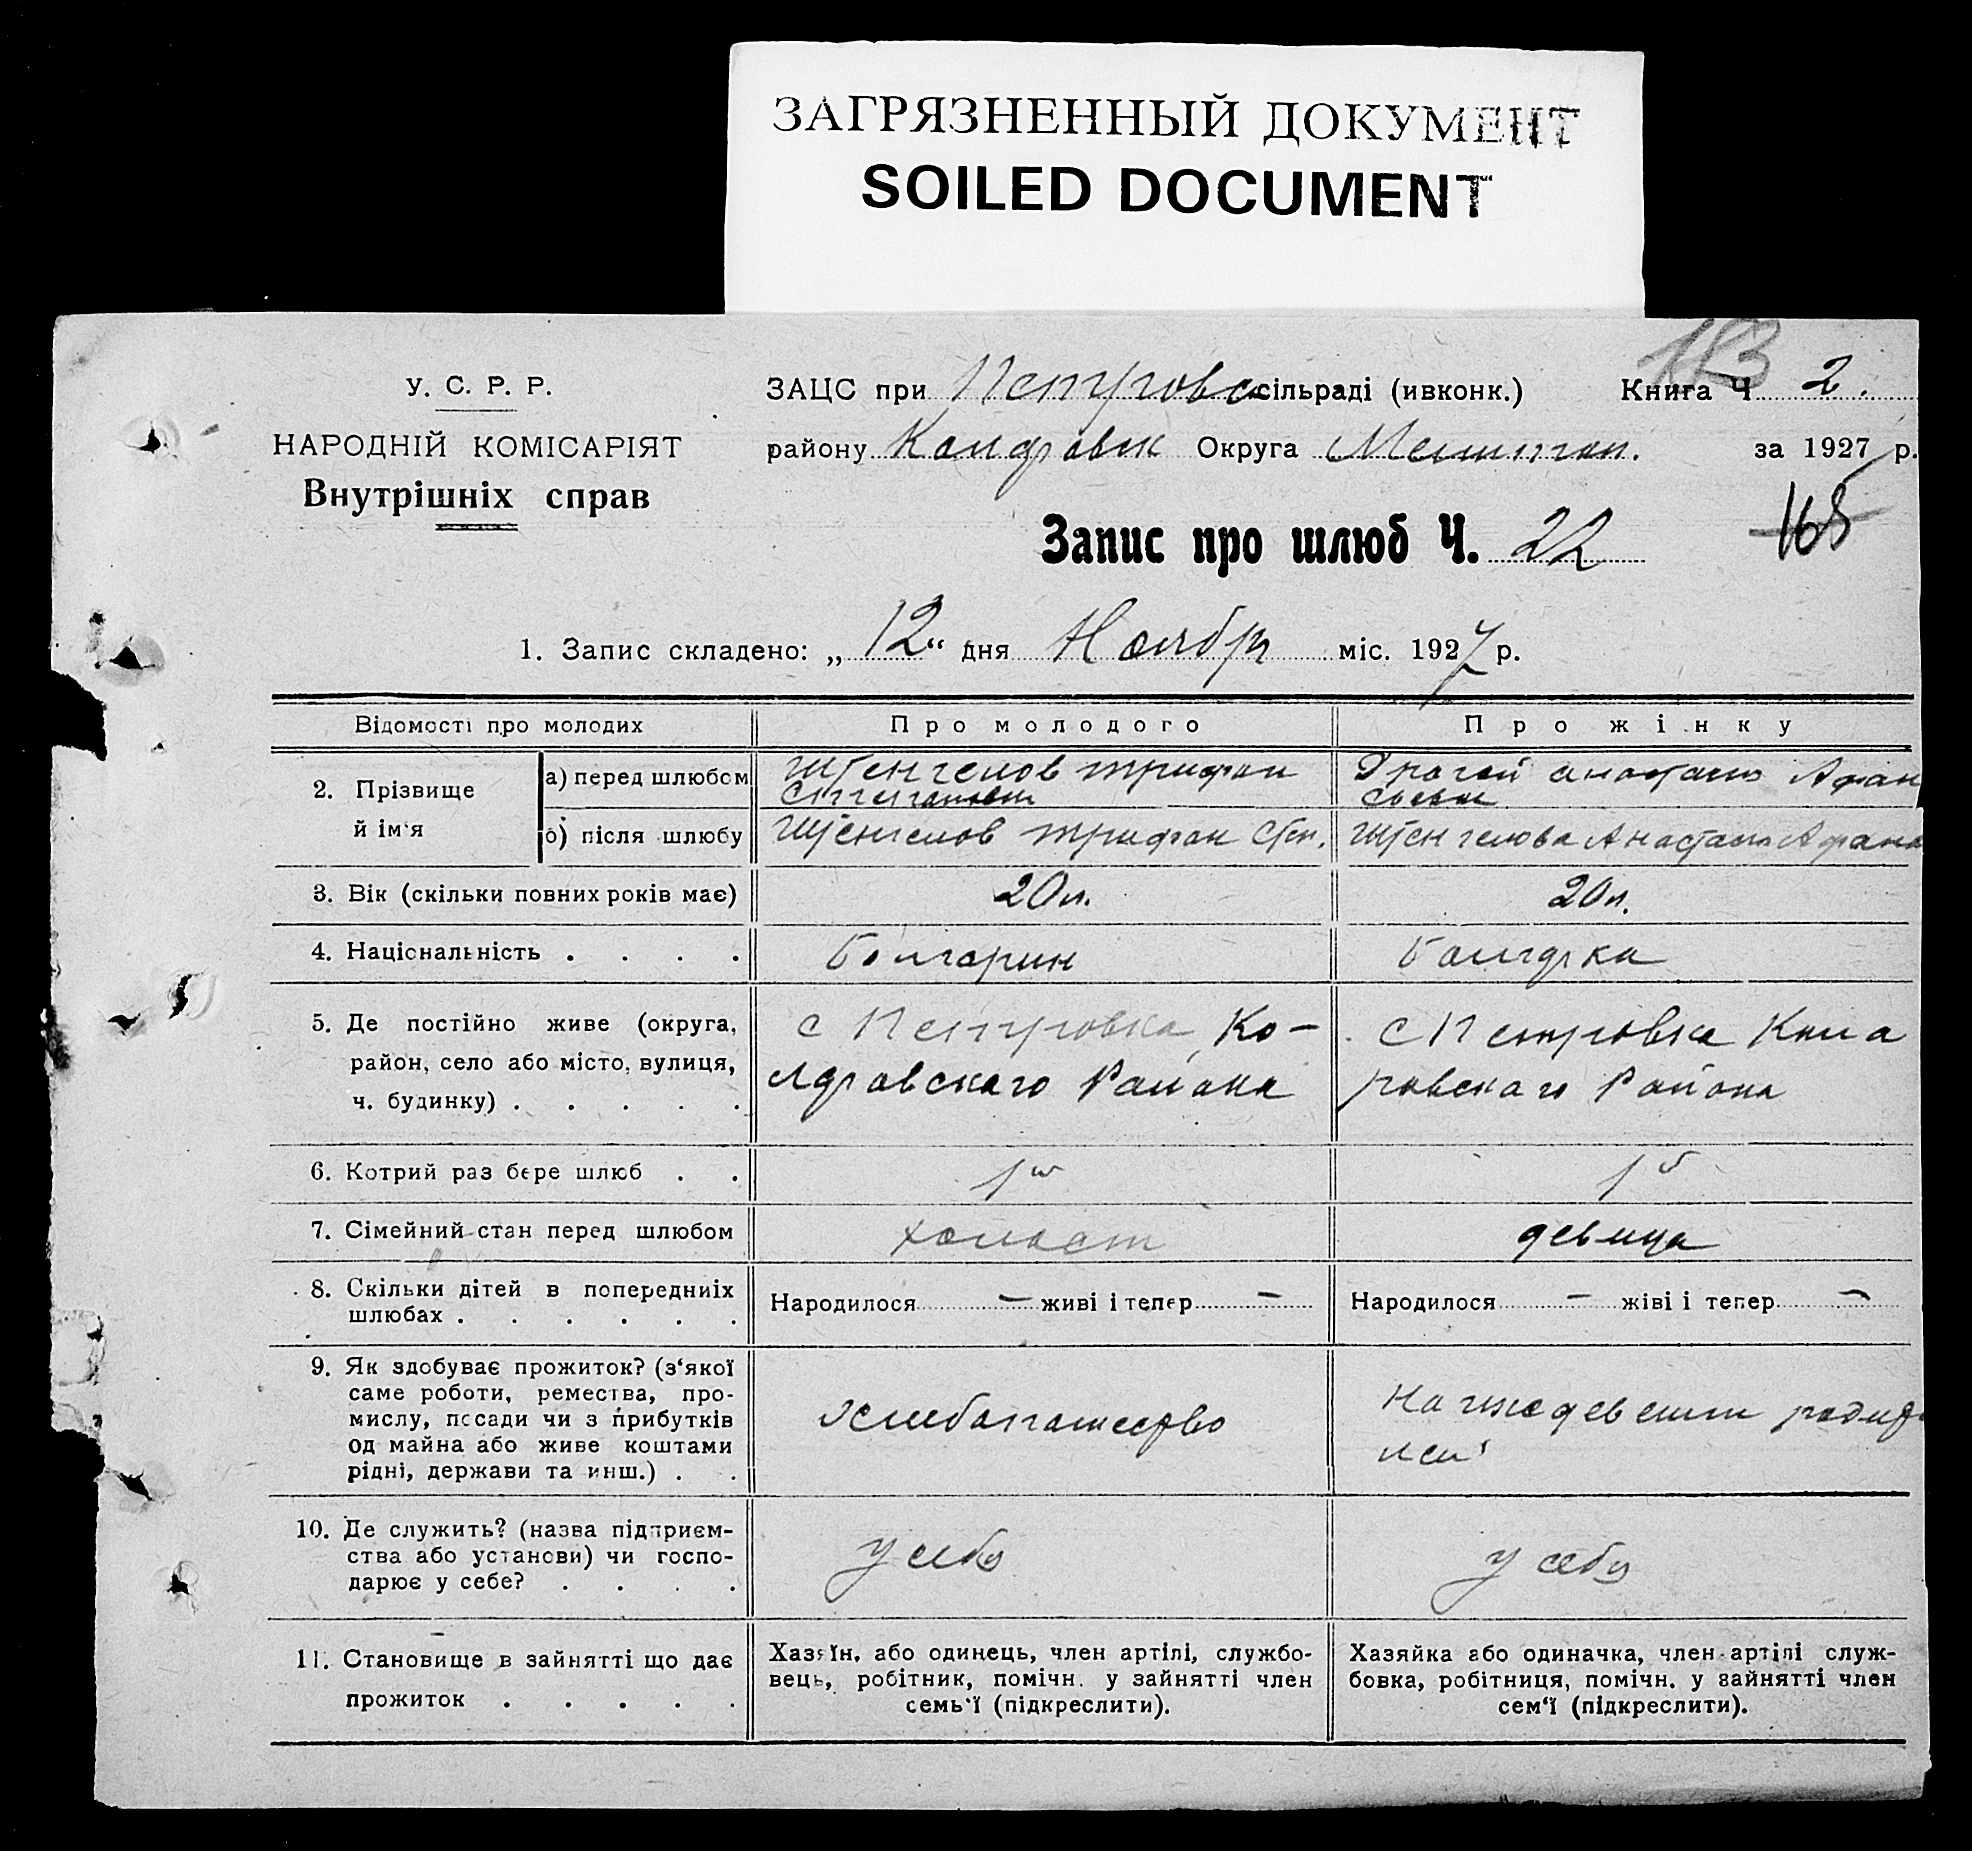 ЗАГРЯЗНЕННЫЙ ДОКУМЕНТ
SOILED DOCUMENT
У. С. Р. Р.
НАРОДНІЙ КОМІСАРІЯТ
Внутрішніх справ
ЗАЦС при Петровс сільраді (ивконк.) Книга Ч 2.
району Округа за 1927 р.
Запис про шлюб Ч. 22
165
1. Запис складено: „ 12 “ дня Ноябр міс. 1927 р.
Відомості про молодих Про молодого Про жінку
2. Прізвище й ім‘я
а) перед шлюбом Трифан
Анастаси Афан
б) після шлюбу Трифан Степ. Анастаси Афана
3. Вік (скільки повних років має) 20 л. 20 л.
4. Національність . . . . Болгарин Болгарка
5. Де постійно живе (округа, с Петровка Ко- с Петровка Кола
район, село або місто, вулиця, ларавскаго Раиона ровскаго Района
ч. будинку) . . . . .
6. Котрий раз бере шлюб . . 1й 1й
7. Сімейний стан перед шлюбом холост девица
8. Скільки дітей в попередниіх Народилося — живі і тепер — Народилося — жіві і тепер —
шлюбах . . . . . .
9. Як здобуває прожиток? (з‘якої
саме роботи, ремества, про-
мислу, посади чи з прибутків хлебопашество На иждевении родит
од майна або живе коштами лей
рідні, держави та инш.) . .
10. Де служить? (назва підприєм-
ства або установи) чи госпо- у себя у себя
дарює у себе? . . . .
11. Становище в зайнятті що дає
прожиток . . . . .
Хазяїн, або одинець, член артілі, службо-
вець, робітник, помічн. у зайнятті член
семь‘ї (підкреслити).
Хазяйка або одиначка, член артілі служ-
бовка, робітниця, помічн. у зайнятті член
сем‘ї (підкреслити).